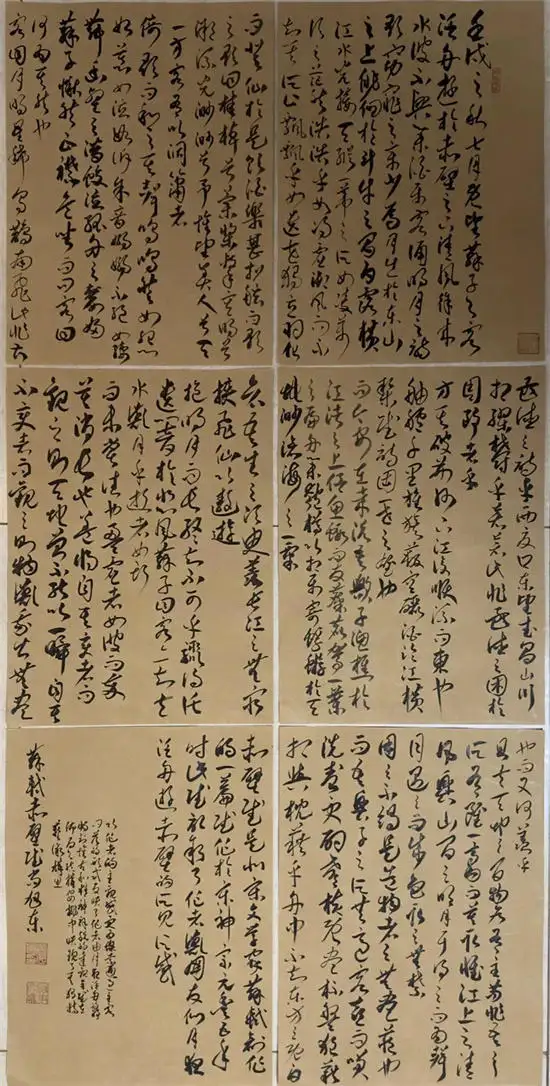 壬戌之秋七月既望苏子与客
泛舟游于赤壁之下清风徐来
水波不兴举酒属客诵明月之诗
歌窈窕之章少焉月出于东山
之上徘徊于斗牛之间白露横
江水光接天纵一苇之所如凌万
顷之茫然浩浩乎如冯虚御风而不
知其所止飘飘乎如遗世独立羽化
而登仙於是饮酒乐甚扣舷而歌
之歌曰桂棹兮兰桨击空明兮
溯流光渺渺兮予怀望美人兮天
一方客有吹洞箫者
倚歌而和之其声呜呜然如怨
如慕如泣如诉余音袅袅不绝如缕
舞幽壑之潜蛟泣孤舟之嫠妇
苏子愀然正襟危坐而问客曰
何为其然也
客曰月明星稀乌鹊南飞此非曹
孟德之诗乎西望夏口东望武昌山川
相缪郁乎苍苍此非孟德之困于
周郎者乎
方其破荆州下江陵顺流而东也
舳舻千里旌旗蔽空酾酒临江横
槊赋诗固一世之雄也
而今安在哉况吾与子渔樵於
江渚之上侣鱼虾而友麋鹿驾一叶
之扁舟举匏樽以相属寄蜉蝣於天
地渺沧海之一粟
哀吾生之须臾羡长江之无穷
挟飞仙以遨游
抱明月而长终知不可乎骤得托
遗响於悲风苏子曰客亦知夫
水与月乎逝者如斯
而未尝往也盈虚者如彼而卒
莫消长也盖将自其变者而
观之则天地曾不能以一瞬自其
不变者而观之则物与我皆无尽
也而又何羡乎
且夫天地之间物各有主苟非吾之
所有虽一毫而莫取惟江上之清
风与山间之明月耳得之而为声
目遇之而成色取之无禁
用之不竭是造物者之无尽藏也
而吾与子之所共适客喜而笑
洗盏更酌肴核既尽杯盘狼藉
相与枕藉乎舟中不知东方之既白
赤壁赋是北宋文学家苏轼创作
的一篇赋作于宋神宗元丰五年
此赋记叙了作者与朋友们月夜
泛舟游赤壁的所见所感
以作者的主观感受为线索通过主客
问答的形式反映了作者由月夜泛舟的舒
苏轼赤壁赋